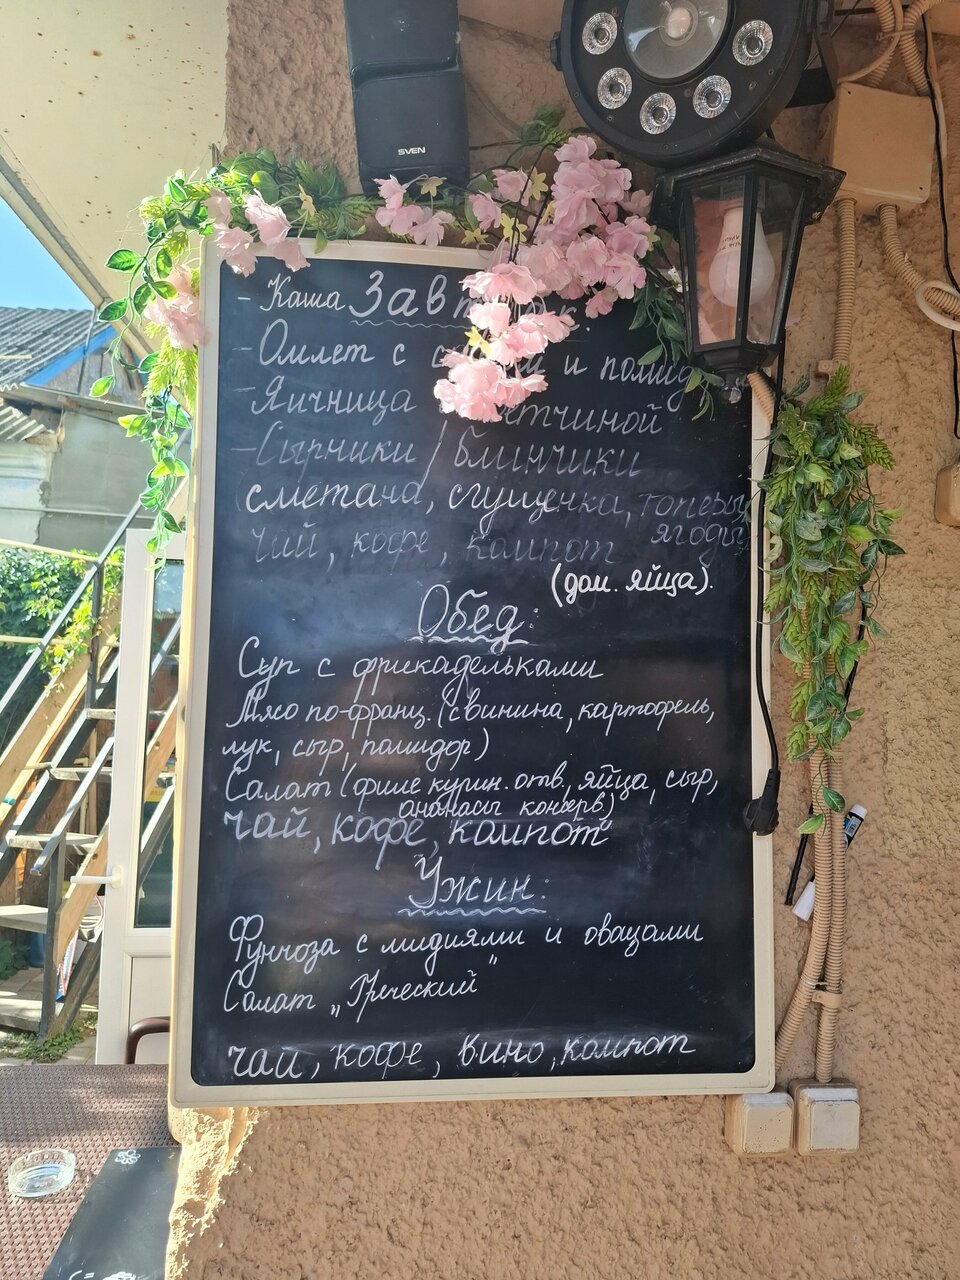 SVEN
Завтрак:
- Каша
- Омлет с и помид
- Яичница ветчиной
- Сырчики / блинчики
(сметана, сгущенка, топеры,
ягоды
чай, кофе, компот
(дом. яйца).
Обед:
Суп с фрикадельками
Мясо по-франц. (свинина, картофель,
лук, сыр, помидор)
Салат (филе курин. отв, яйца, сыр,
ананасы консерв)
чай, кофе, компот
Ужин:
Фунчоза с мидиями и овощами
Салат „Греческий"
чай, кофе, вино, компот